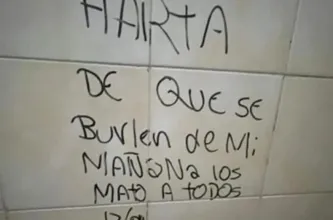 HARTA
DE QUE SE
Burlen de Mi
MAÑANA los
MATO A TODOS